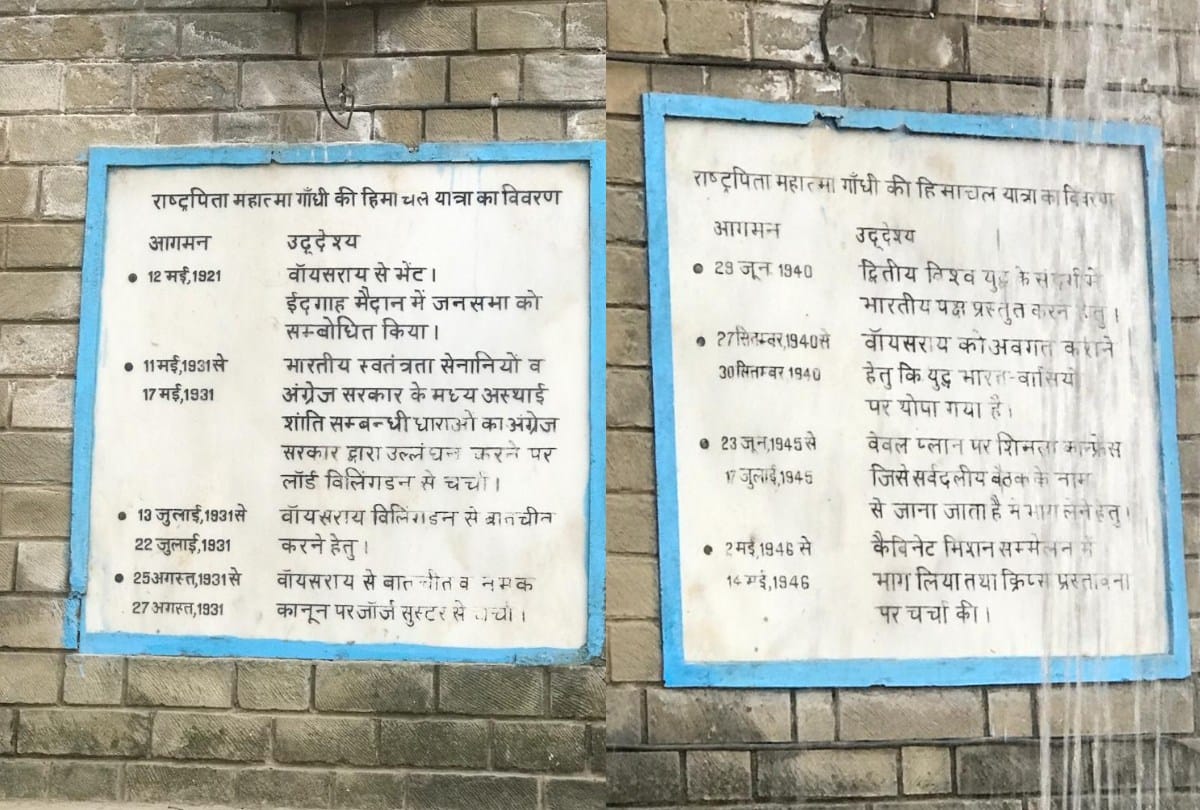 राष्ट्रपिता महात्मा गाँधी की हिमाचल यात्रा का विवरण
आगमन उद्देश्य
• 12 मई,1921 वॉयसराय से भेंट।
ईदगाह मैदान में जनसभा को
सम्बोधित किया।
• 11 मई,1931 से भारतीय स्वतंत्रता सेनानियों व
17 मई,1931 अंग्रेज सरकार के मध्य अस्थाई
शांति सम्बन्धी धाराओं का अंग्रेज
सरकार द्वारा उल्लंघन करने पर
लॉर्ड विलिंगडन से चर्चा।
• 13 जुलाई,1931 से वॉयसराय विलिंगडन से बातचीत
22 जुलाई,1931 करने हेतु।
• 25 अगस्त,1931 से वॉयसराय से बातचीत व नमक
27 अगस्त,1931 कानून पर जॉर्ज सुस्टर से चर्चा।
राष्ट्रपिता महात्मा गाँधी की हिमाचल यात्रा का विवरण
आगमन उद्देश्य
• 29 जून 1940 द्वितीय विश्व युद्ध के संदर्भ में
भारतीय पक्ष प्रस्तुत करने हेतु।
• 27 सितम्बर,1940 से वॉयसराय को अवगत कराने
30 सितम्बर 1940 हेतु कि युद्ध भारत-वासियों
पर थोपा गया है।
• 23 जून,1945 से वेवल प्लान पर शिमला कान्फ्रेंस
17 जुलाई,1945 जिसे सर्वदलीय बैठक के नाम
से जाना जाता है में भाग लेने हेतु।
• 2 मई,1946 से कैबिनेट मिशन सम्मेलन में
14 मई,1946 भाग लिया तथा क्रिप्स प्रस्तावना
पर चर्चा की।